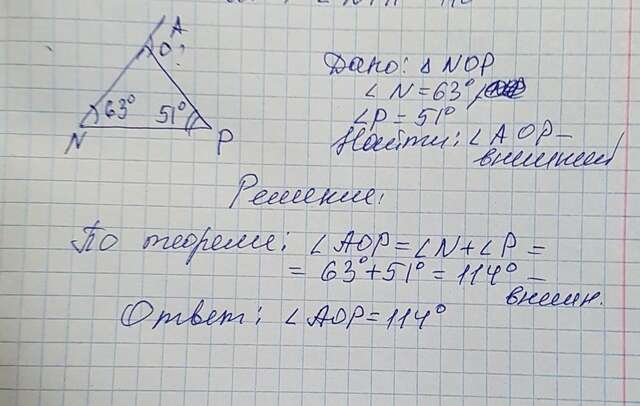 A
O ?
63° 51°
N P
Дано: Δ NOP
∠N = 63°,
∠P = 51°
Найти: ∠AOP –
внешний
Решение:
По теореме: ∠AOP = ∠N + ∠P =
= 63° + 51° = 114° –
внешн.
Ответ: ∠AOP = 114°